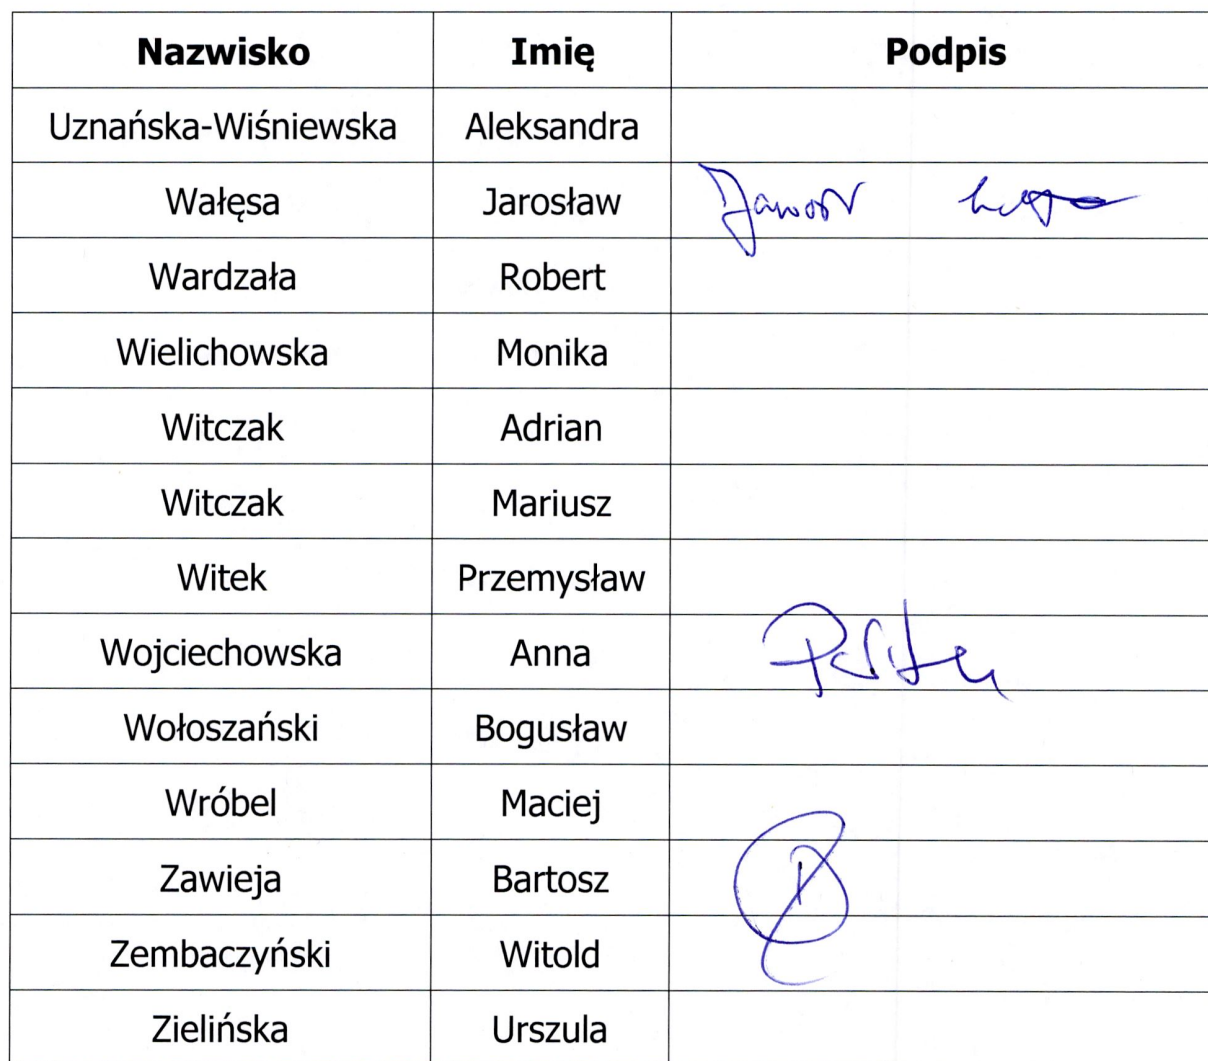 Nazwisko Imię Podpis
Uznańska-Wiśniewska Aleksandra
Wałęsa Jarosław
Wardzała Robert
Wielichowska Monika
Witczak Adrian
Witczak Mariusz
Witek Przemysław
Wojciechowska Anna
Wołoszański Bogusław
Wróbel Maciej
Zawieja Bartosz
Zembaczyński Witold
Zielińska Urszula